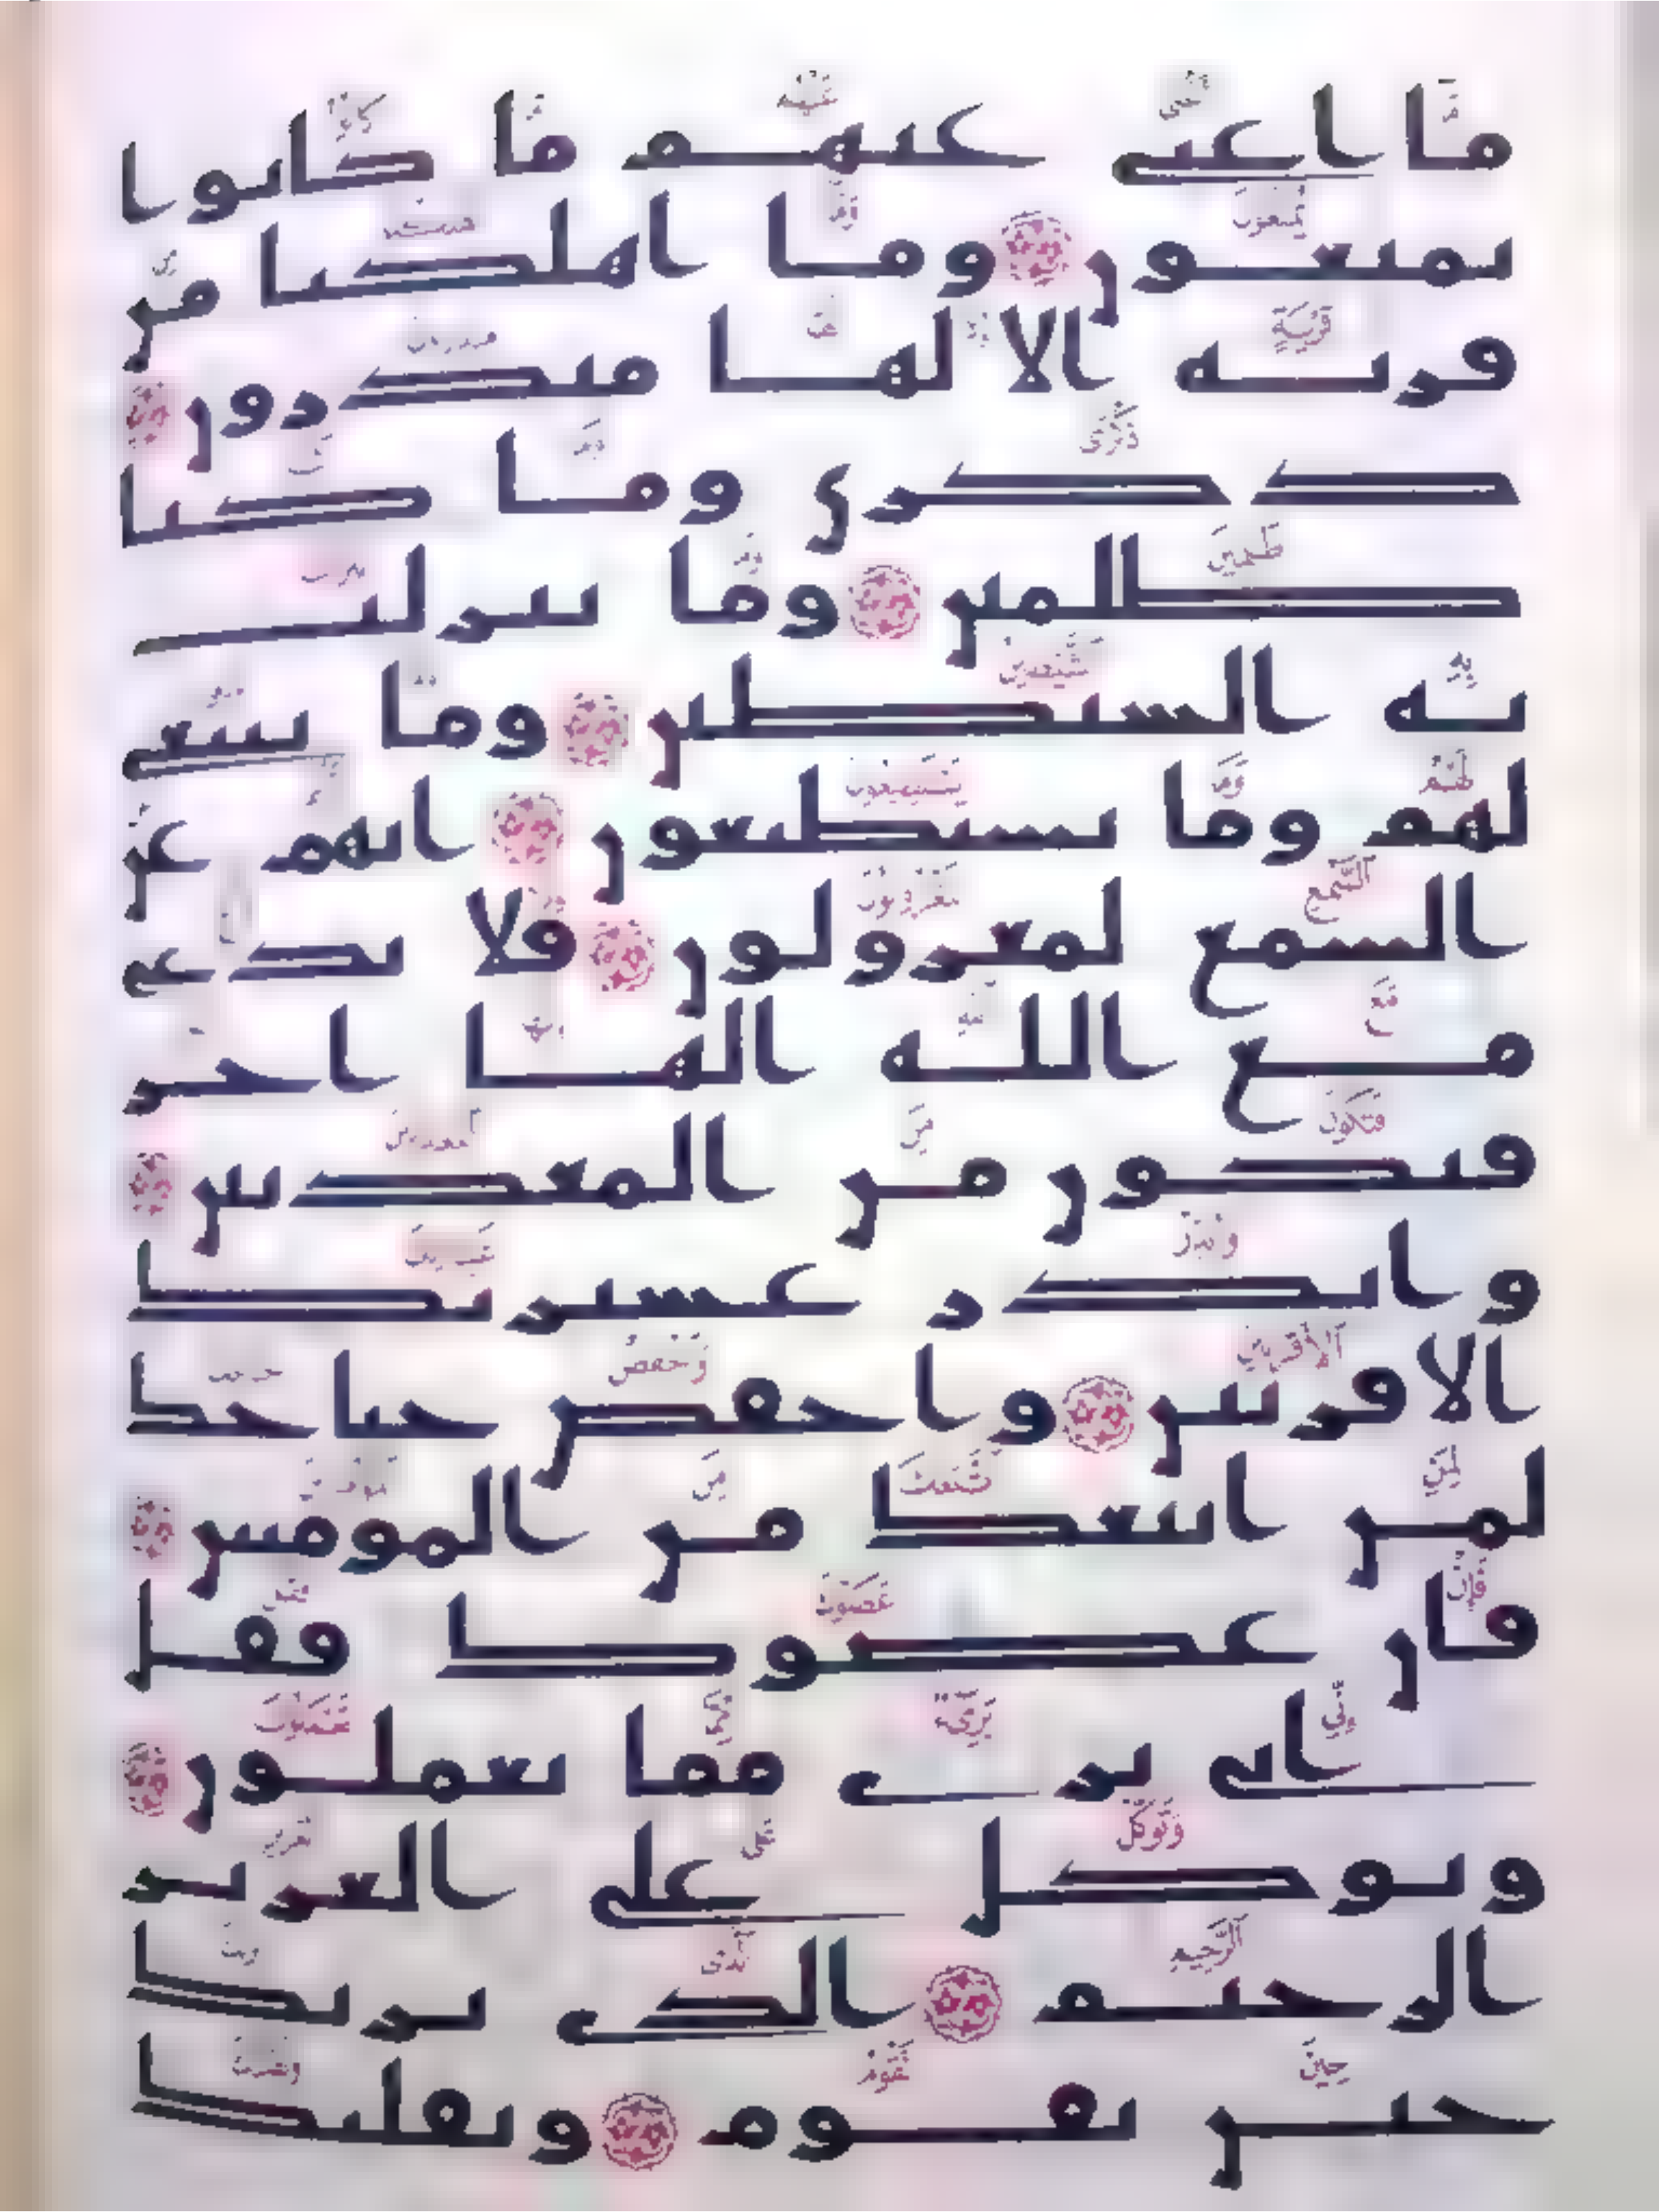 ما اغنى عنهم ما كانوا
يمتعون وما اهلكنا من
قرية الا لها منذرون
ذكرى وما كنا
ظلمين وما تنزلت
به الشيطين وما ينبغى
لهم وما يستطيعون انهم عن
السمع لمعزولون فلا تدع
مع الله الها اخر
فتكون من المعذبين
وانذر عشيرتك
الاقربين واخفض جناحك
لمن اتبعك من المومنين
فان عصوك فقل
انى برى مما تعملون
وتوكل على العزيز
الرحيم الذى يريك
حين تقوم وتقلبك